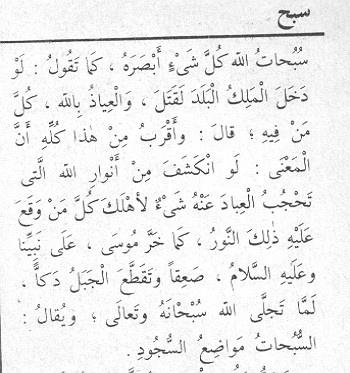 سبح
سُبُحاتُ الله كُلَّ شَىْءٍ أَبْصَرَهُ ، كَمَا تَقُولُ : لَوْ
دَخَلَ الْمَلِكُ الْبَلَدَ لَقَتَلَ ، وَالْعِياذُ بِالله ، كُلَّ
مَنْ فِيهِ ؛ قالَ : وأَقْرَبُ مِنْ هٰذا كُلِّهِ أَنَّ
الْمَعْنَى : لَوِ انْكَشَفَ مِنْ أَنْوارِ الله الَّتى
تَحْجُبُ الْعِبادَ عَنْهُ شَىْءٌ لأَهْلَكَ كُلَّ مَنْ وَقَعَ
عَلَيْهِ ذٰلِكَ النُّورُ ، كَمَا خَرَّ مُوسَى ، عَلَى نَبِيِّنا
وعَلَيْهِ السَّلامُ ، صَعِقاً وتَقَطَّعَ الْجَبَلُ دَكاًّ ،
لَمَّا تَجَلَّى الله سُبْحَانَهُ وتَعالَى ؛ ويُقالُ :
السُّبُحاتُ مَواضِعُ السُّجُودِ .